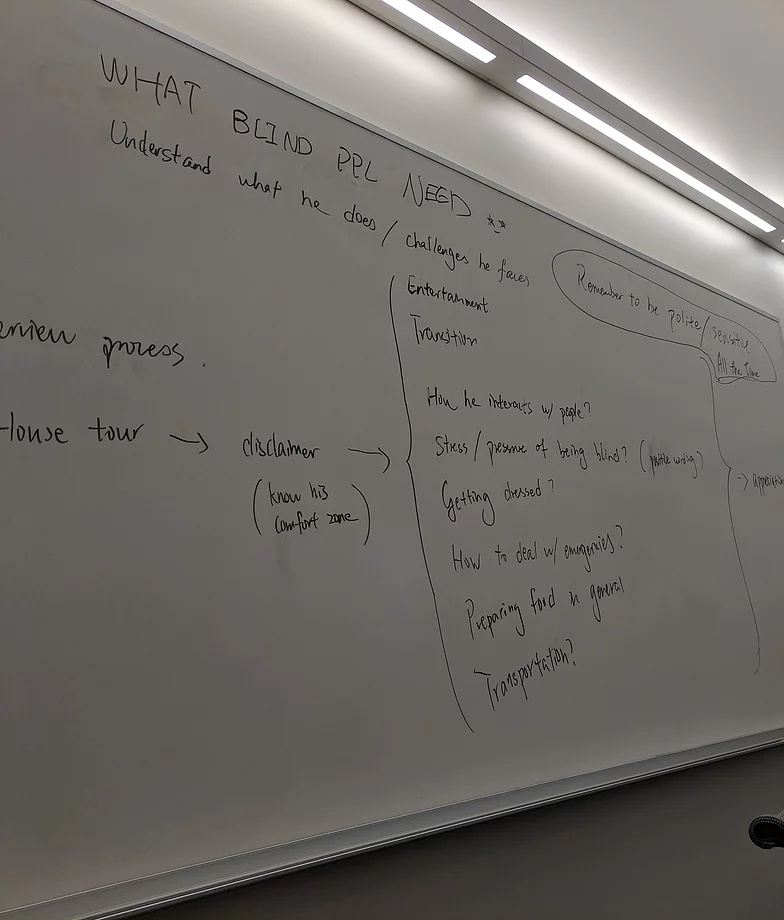 WHAT BLIND PPL NEED **
Understand what he does / challenges he faces
Remember to be polite / sensitive
All the time
process.
House tour → disclaimer →
(know his
comfort zone)
Entertainment
Transition
How he interacts w/ people?
Stress / pressure of being blind? (positive wording)
Getting dressed?
How to deal w/ emergencies?
Preparing food in general
Transportation?
→